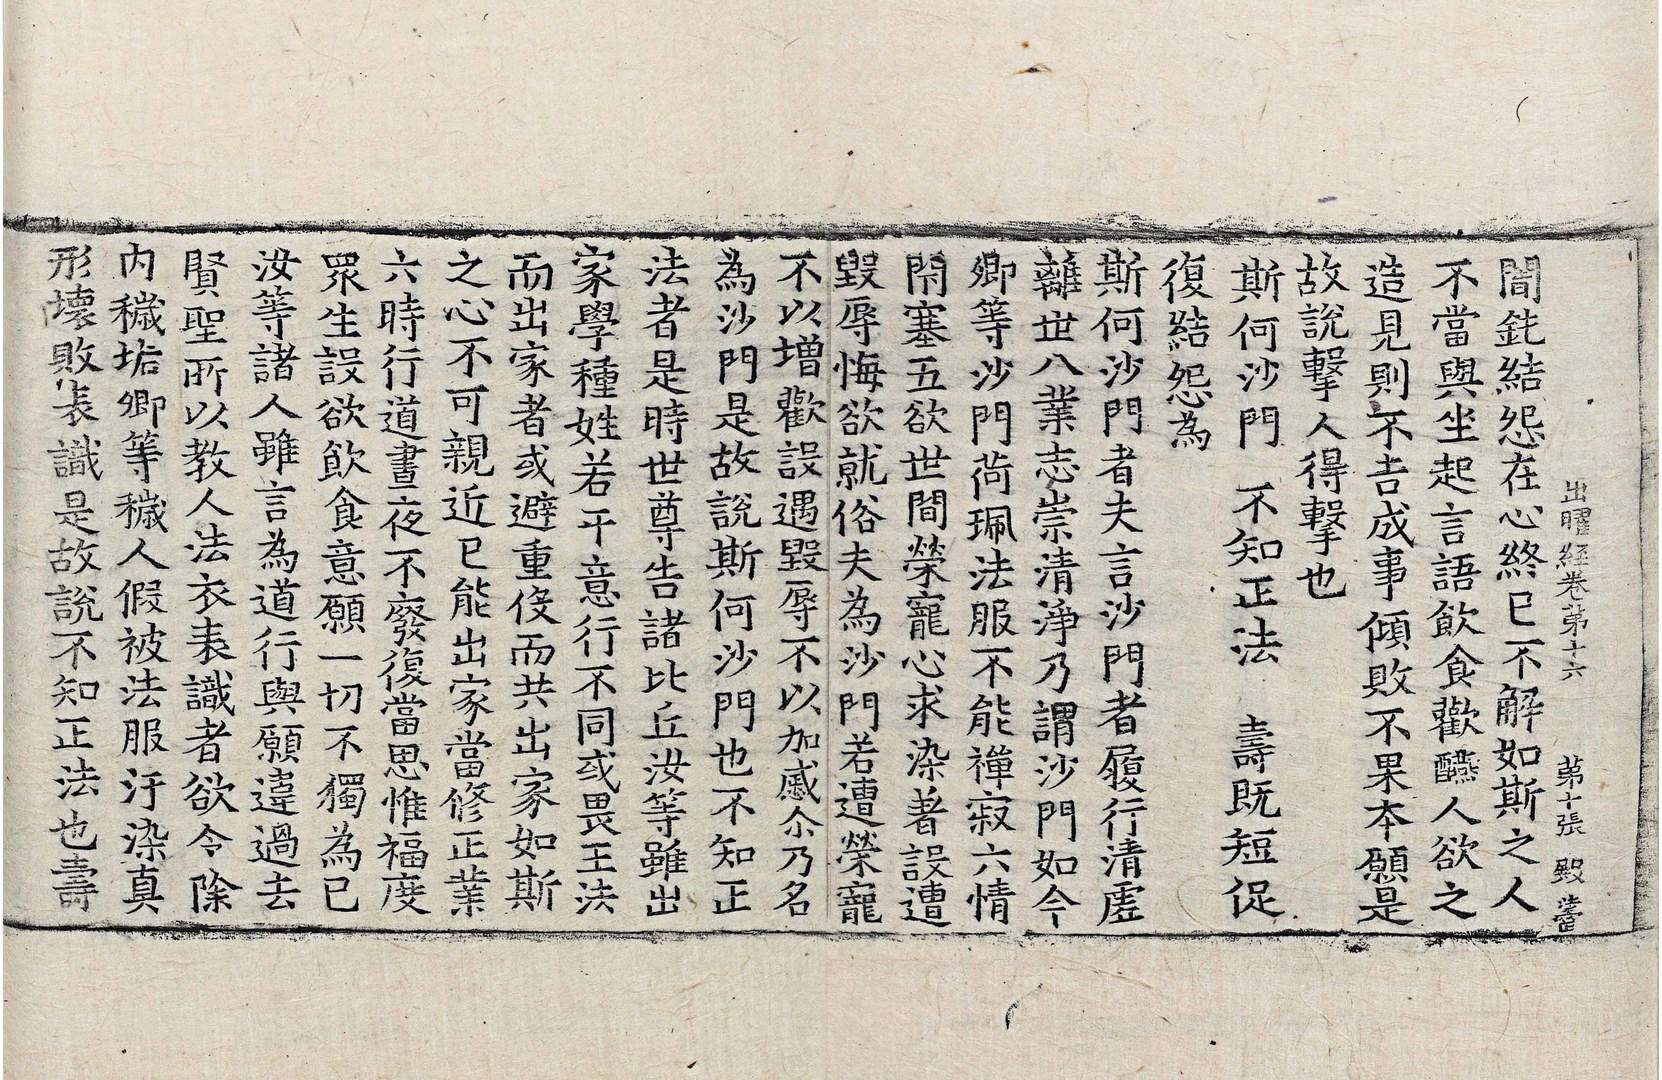 出曜經卷第十六 第十張 毀 當
闇鈍結怨在心終已不解如斯之人
不當與坐起言語飲食歡醼人欲之
造見則不吉成事傾敗不果本願是
故說擊人得擊也
斯何沙門 不知正法 壽既短促
復結怨為
斯何沙門者夫言沙門者履行清虛
離世八業志崇清淨乃謂沙門如今
卿等沙門荷珮法服不能禪寂六情
閇塞五欲世間榮寵心求染著設遭
毀辱悔欲就俗夫為沙門若遭榮寵
不以增歡設遇毀辱不以加慼尒乃名
為沙門是故說斯何沙門也不知正
法者是時世尊告諸比丘汝等雖出
家學種姓若干意行不同或畏王法
而出家者或避重伇而共出家如斯
之心不可親近已能出家當修正業
六時行道晝夜不廢復當思惟福度
眾生設欲飲食意願一切不獨為已
汝等諸人雖言為道行與願違過去
賢聖所以教人法衣表識者欲令除
內穢垢卿等穢人假被法服汙染真
形壞敗表識是故說不知正法也壽